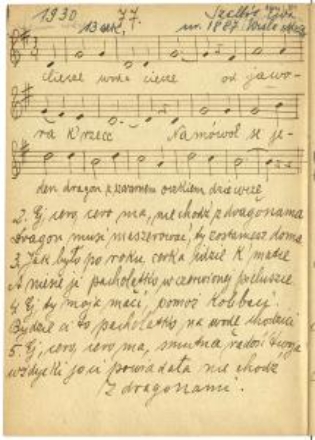 1930 77.
13 sek. ur. 1887
ciecze woda ciecze od jawo-
ra K'rzece Namówioł se je-
den dragon z czarnem oczkiem dziewczę
2. Ej cero, cero ma, nie chodź z dragonama
Dragon musi maszerować, ty zostaniesz doma
3. Jak było po roku, cerka idzie K'matce
A niesie ji pacholątko w czerwonej
4. Ej ty moja mać, pomóż kolebać.
Będzie ci to pacholątko, na wodę chodzić
5. Ej, cero, cero ma, smutna radość twoja
wdycki jo ci powiadała nie chodź
z dragonami.